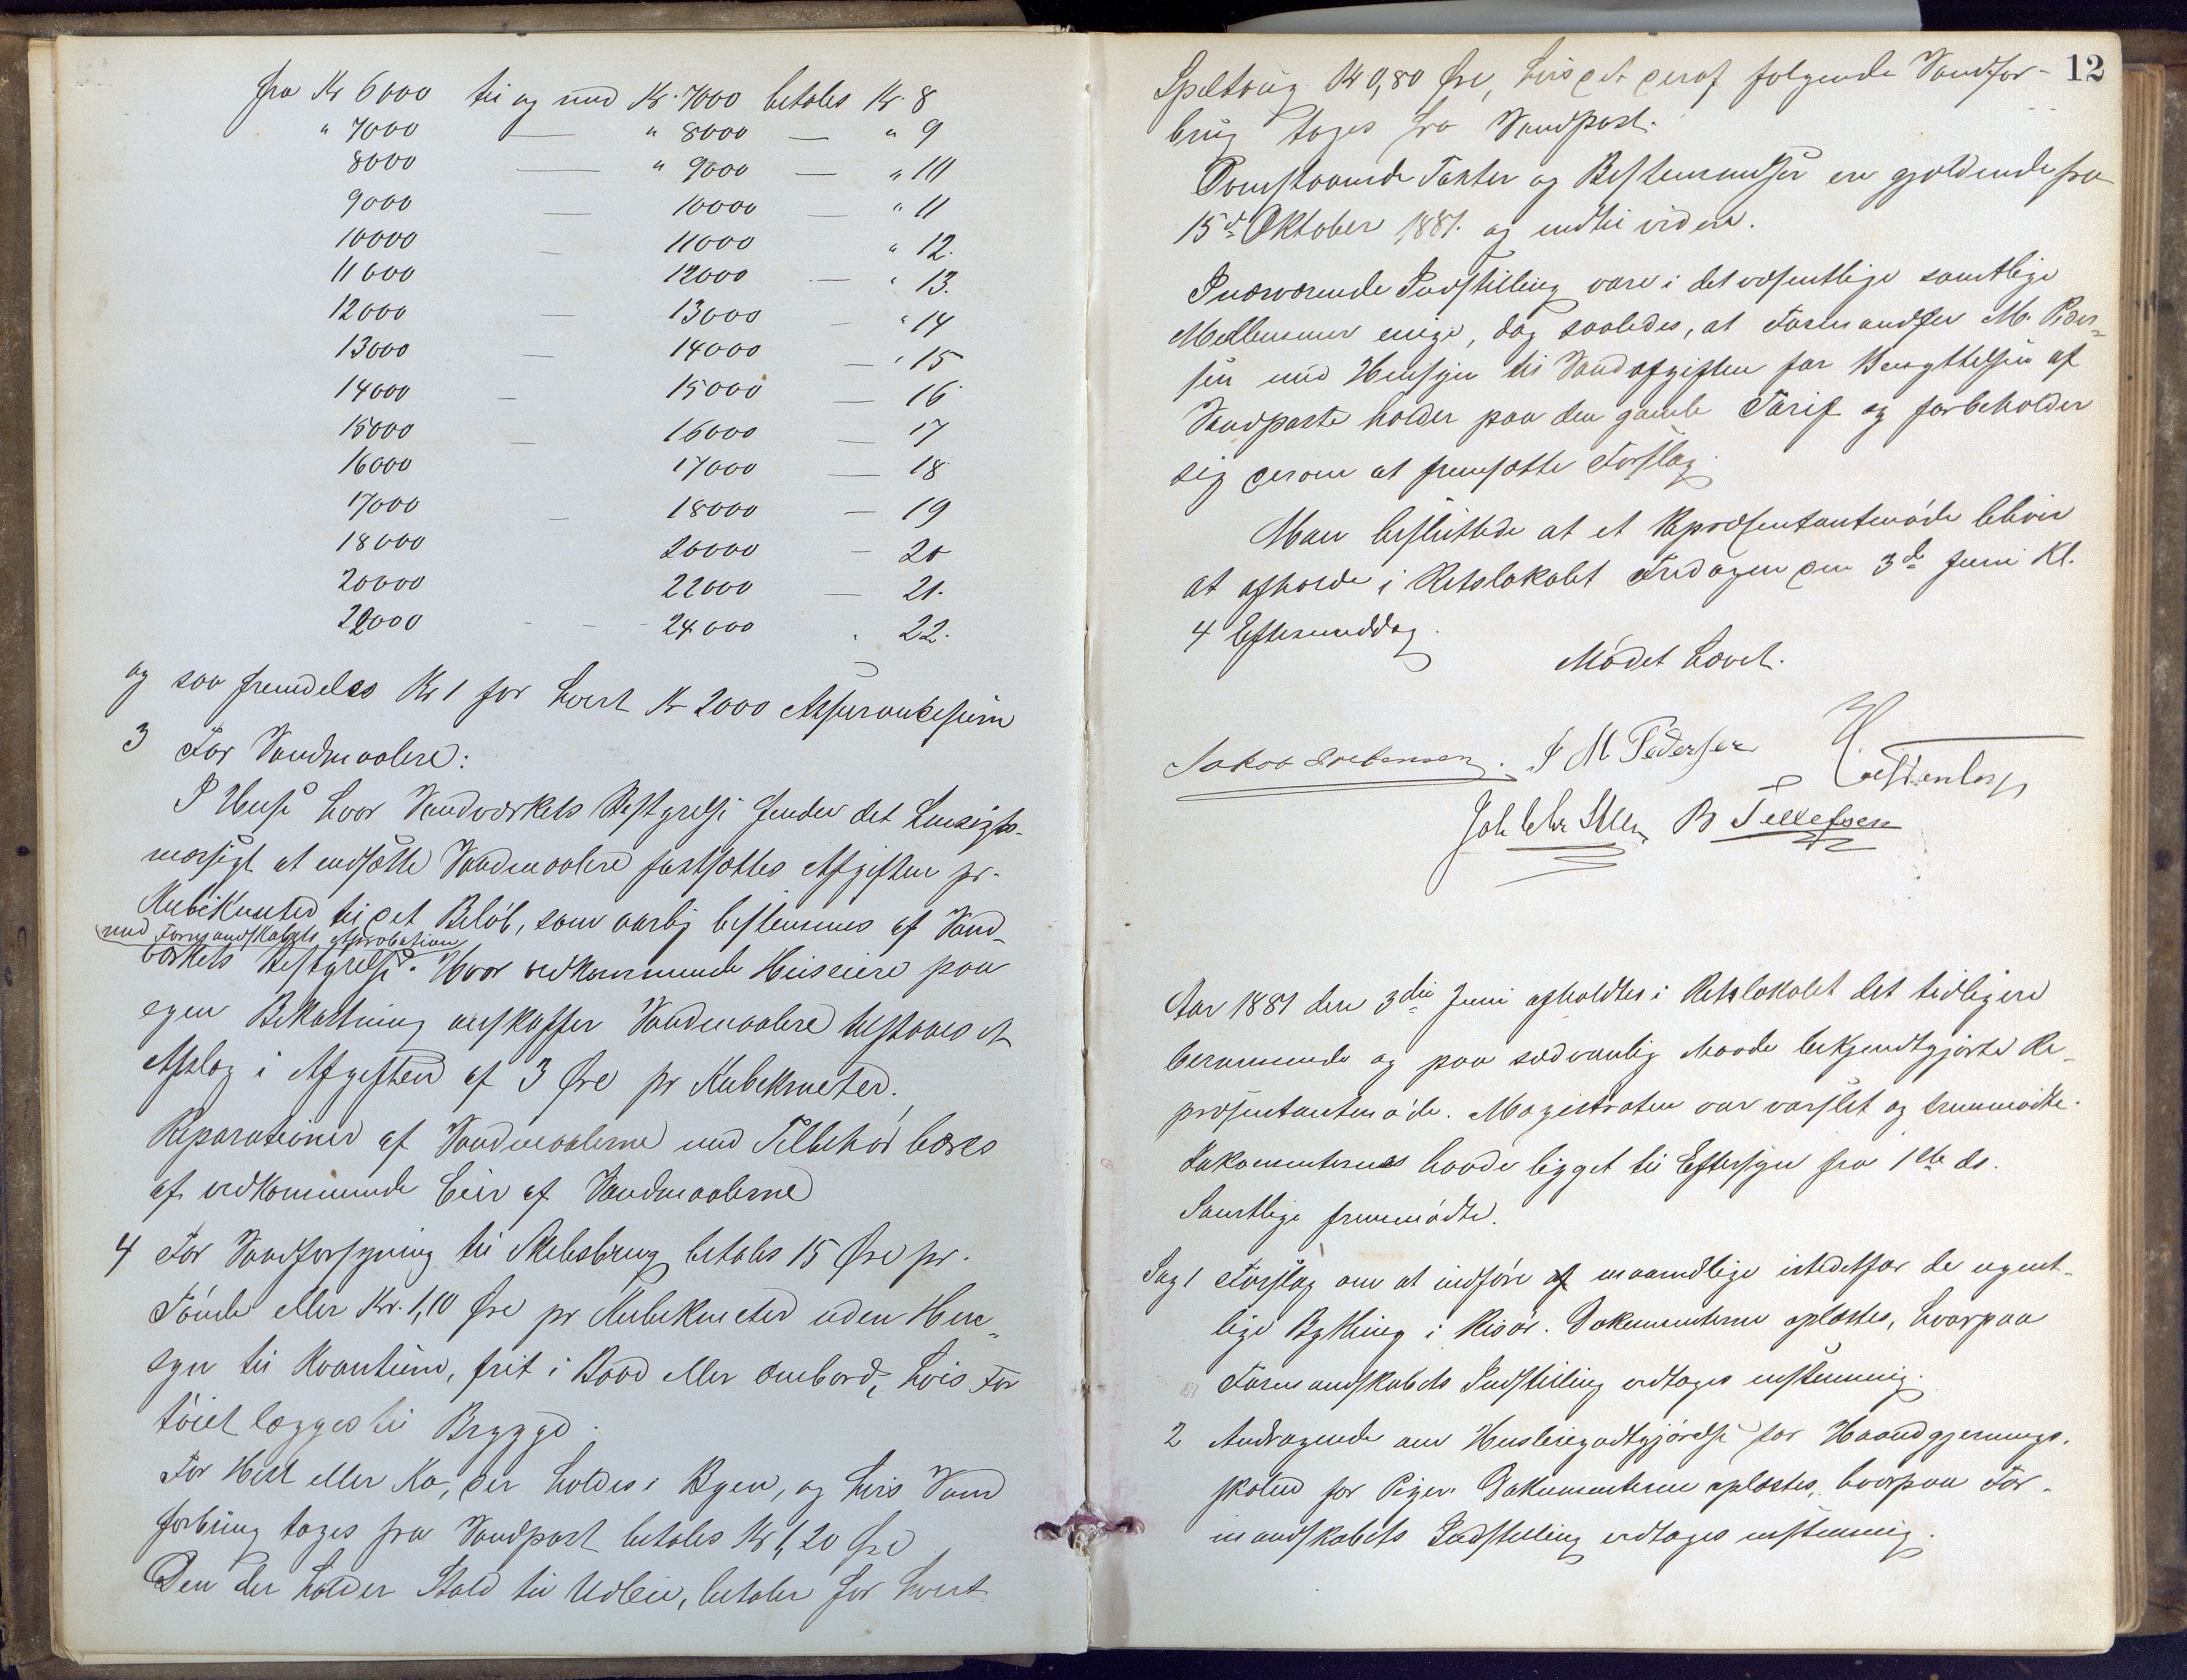 fra Kr 6000 til og med Kr. 7000 betales Kr. 8
" 7000 — " 8000 — " 9
8000 — " 9000 — " 10
9000 — 10000 — " 11
10000 — 11000 " 12.
11000 — 12000 — " 13.
12000 — 13000 — " 14
13000 — 14000 — " 15
14000 — 15000 — 16
15000 — 16000 — 17
16000 17000 — 18
17000 — 18000 — 19
18000 20000 — 20
20000 22000 — 21.
22000 - - 24000 . 22.
og saa fremdeles Kr 1 for hvert Kr 2000 Assurancesum
3 For Vandmaalere:
I Huse hvor Vandværkets Bestyrelse finder det hensigts-
mæssigt at indsætte Vandmaalere fastsættes Afgiften pr.
Kubikmeter til det Beløb, som aarlig bestemmes af Vand-
med Formandskabets Approbation
værkets Bestyrelse. Hvor vedkommende Huseiere paa
egen Bekostning anskaffer Vandmaalere tilstaaes et
Afslag i Afgiften af 3 Øre pr Kubikmeter.
Reparationer af Vandmaalerne med Tilbehør bæres
af vedkommende Eier af Vandmaalerne
4 For Vandforsyning til Skibsbrug betales 15 Øre pr.
Tønde eller Kr. 1,10 Øre pr Kubikmeter uden Hen-
syn til Kvantum, frit i Baad eller ombord, hvis Far
tøiet lægges til Brygge.
For Hest eller Ko, der holdes i Byen, og hvis Vand
forbrug tages fra Vandpost betales Kr 1,20 Øre
Den der holder Stald til Udleie, betaler for hvert
12
Spiltoug Kr 0,80 Øre, hvis det deraf følgende Vandfor-
brug tages fra Vandpost.
Ovenstaaende Takter og Bestemmelser ere gjældende fra
15de Oktober 1881. og indtil videre.
I nærværende Indstilling vare i det væsentlige samtlige
Medlemmer enige, dog saaledes, at Formand M. Peder-
sen med Hensyn til Vandafgiften for Benyttelsen af
Vandposte holder paa den gamle Tarif og forbeholder
sig derom at fremsætte Forslag.
Man besluttede at et Repræsentantmøde bliver
at afholde i Retslokalet Fredagen den 3de Juni Kl.
4 Eftermiddag.
Mødet hævet.
J M Pedersen
B Tellefsen
Aar 1881 den 3die Juni afholdtes i Retslokalet det tidligere
berammede og paa sædvanlig Maade bekjendtgjorte Re-
præsentantmøde. Magistraten var varslet og fremmødte.
Dokumenterne havde ligget til Eftersyn fra 1ste ds.
Samtlige fremmødte.
Sag 1 Forslag om at indføre af maanedlige istedetfor de ugent-
lige Bything i Risør. Dokumenterne oplæstes, hvorpaa
Formandskabets Indstilling vedtoges enstemmig.
2 Andragende om Husleiegodtgjørelse for Haandgjernings-
skolen for Piger. Dokumenterne oplæstes, hvorpaa For-
mandskabets Indstilling vedtoges enstemmig.